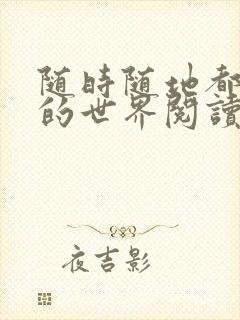 随時随地都
的世界閱讀
夜吉影